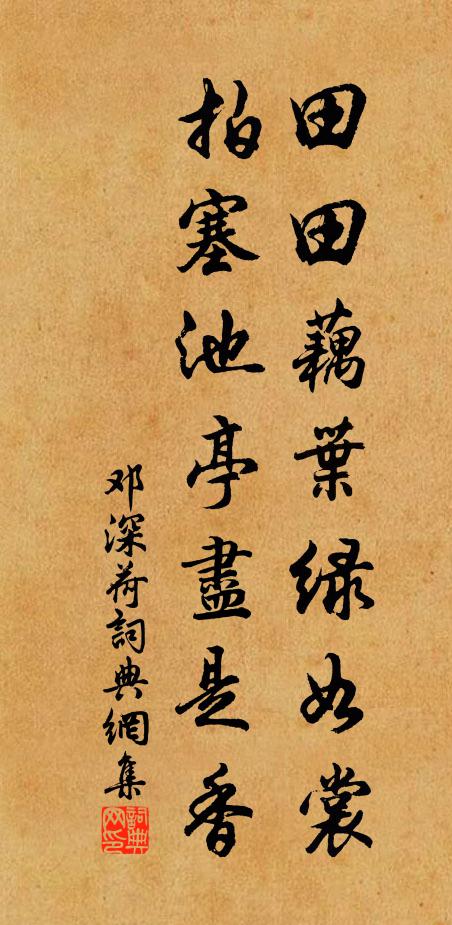 田田藕葉绿如裳
拍塞池亭盡是香
邓深荷詞典網集
詞典网印